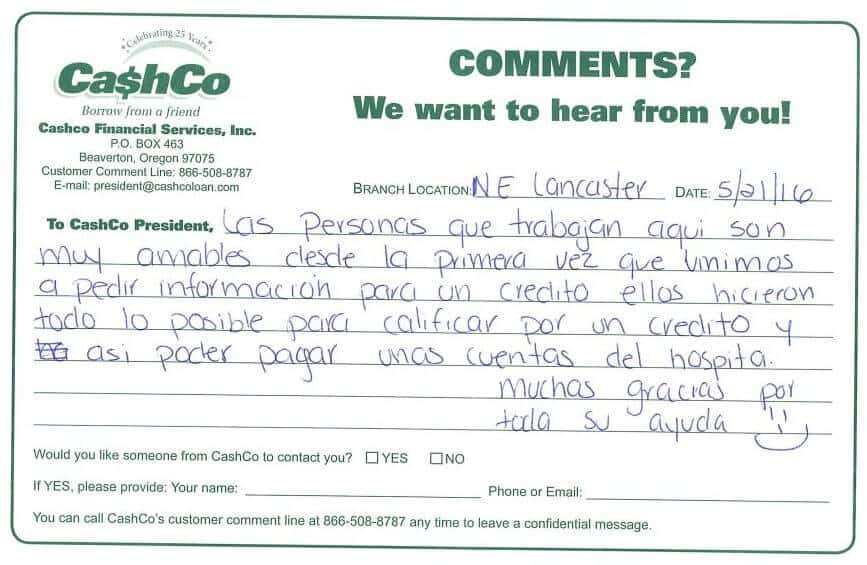 Celebrating 25 Years
Ca$hCo
Borrow from a friend
Cashco Financial Services, Inc.
P.O. BOX 463
Beaverton, Oregon 97075
Customer Comment Line: 866-508-8787
E-mail: president@cashcoloan.com
COMMENTS?
We want to hear from you!
BRANCH LOCATION: NE Lancaster DATE: 5/21/16
To CashCo President, Las personas que trabajan aqui son
muy amables desde la primera vez que vinimos
a pedir información para un credito ellos hicieron
todo lo posible para calificar por un credito y
asi poder pagar unas cuentas del hospita.
muchas gracias por
toda su ayuda
Would you like someone from CashCo to contact you? YES NO
If YES, please provide: Your name: Phone or Email:
You can call CashCo's customer comment line at 866-508-8787 any time to leave a confidential message.